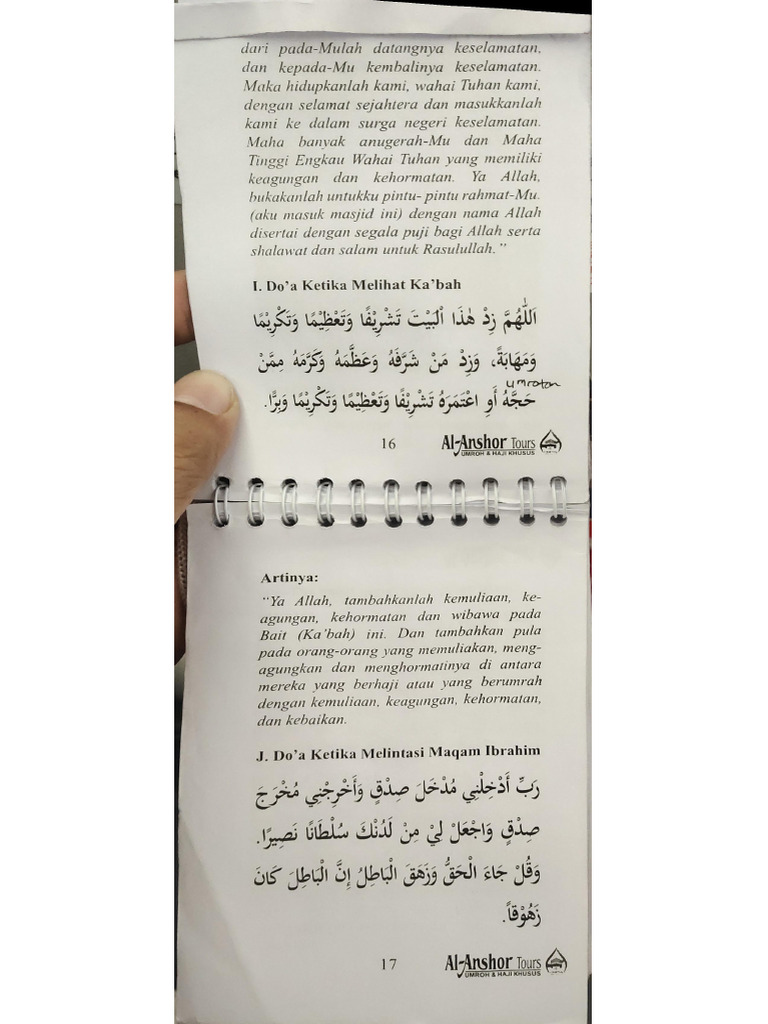 dari pada-Mulah datangnya keselamatan,
dan kepada-Mu kembalinya keselamatan.
Maka hidupkanlah kami, wahai Tuhan kami,
dengan selamat sejahtera dan masukkanlah
kami ke dalam surga negeri keselamatan.
Maha banyak anugerah-Mu dan Maha
Tinggi Engkau Wahai Tuhan yang memiliki
keagungan dan kehormatan. Ya Allah,
bukakanlah untukku pintu- pintu rahmat-Mu.
(aku masuk masjid ini) dengan nama Allah
disertai dengan segala puji bagi Allah serta
shalawat dan salam untuk Rasulullah."
I. Do'a Ketika Melihat Ka'bah
اَللّٰهُمَّ زِدْ هٰذَا الْبَيْتَ تَشْرِيْفًا وَتَعْظِيْمًا وَتَكْرِيْمًا
وَمَهَابَةً، وَزِدْ مَنْ شَرَّفَهُ وَعَظَّمَهُ وَكَرَّمَهُ مِمَّنْ
umratan
حَجَّهُ أَوِ اعْتَمَرَهُ تَشْرِيْفًا وَتَعْظِيْمًا وَتَكْرِيْمًا وَبِرًّا.
16 Al-Anshor Tours
UMROH & HAJI KHUSUS
Artinya:
"Ya Allah, tambahkanlah kemuliaan, ke-
agungan, kehormatan dan wibawa pada
Bait (Ka'bah) ini. Dan tambahkan pula
pada orang-orang yang memuliakan, meng-
agungkan dan menghormatinya di antara
mereka yang berhaji atau yang berumrah
dengan kemuliaan, keagungan, kehormatan,
dan kebaikan.
J. Do'a Ketika Melintasi Maqam Ibrahim
رَبِّ أَدْخِلْنِي مُدْخَلَ صِدْقٍ وَأَخْرِجْنِي مُخْرَجَ
صِدْقٍ وَاجْعَلْ لِيْ مِنْ لَدُنْكَ سُلْطَانًا نَصِيرًا.
وَقُلْ جَاءَ الْحَقُّ وَزَهَقَ الْبَاطِلُ إِنَّ الْبَاطِلَ كَانَ
زَهُوْقاً.
17 Al-Anshor Tours
UMROH & HAJI KHUSUS